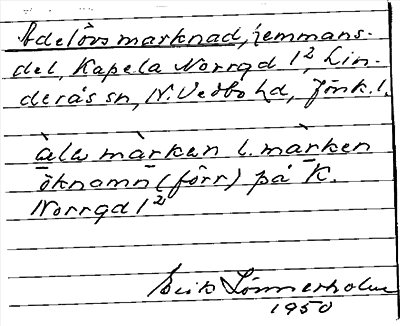 Adelövs marknad, hemmans-
del, Kapela Norrgd 1², Lin-
deräs sn, N. Vedbo hd, Jönk. l.
àela màrkan l. màrken
öknamn (förr) på K.
Norrgd 1²
Erik Lönnerholm
1950